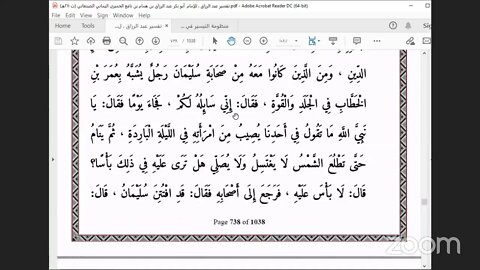 تفسير عبد الرزاق - للإمام أبو بكر عبد الرزاق بن همام بن نافع الحميري اليماني الصنعاني (ت ٢١١هـ).pdf - Adobe Acrobat Reader DC (64-bit)
منظومة التيسير في ...
تفسير عبد الرزاق , ل...
الدِّينِ ، وَمِنَ الَّذِينَ كَانُوا مَعَهُ مِنْ صَحَابَةِ سُلَيْمَانَ رَجُلٌ يُشَبَّهُ بِعُمَرَ بْنِ
الْخَطَّابِ فِي الْجَلَدِ وَالْقُوَّةِ ، فَقَالَ: إِنِّي سَايِلُهُ لَكُمْ ، فَجَاءَ يَوْمًا فَقَالَ: يَا
نَبِيَّ اللَّهِ مَا تَقُولُ فِي أَحَدِنَا يُصِيبُ مِنَ امْرَأَتِهِ فِي اللَّيْلَةِ الْبَارِدَةِ ، ثُمَّ يَنَامُ
حَتَّى تَطْلُعَ الشَّمْسُ لَا يَغْتَسِلُ وَلَا يُصَلِّي هَلْ تَرَى عَلَيْهِ فِي ذَلِكَ بَأْسًا؟
قَالَ: لَا بَأْسَ عَلَيْهِ ، فَرَجَعَ إِلَى أَصْحَابِهِ فَقَالَ: قَدِ افْتُتِنَ سُلَيْمَانُ ، قَالَ:
Page 738 of 1038
zoom